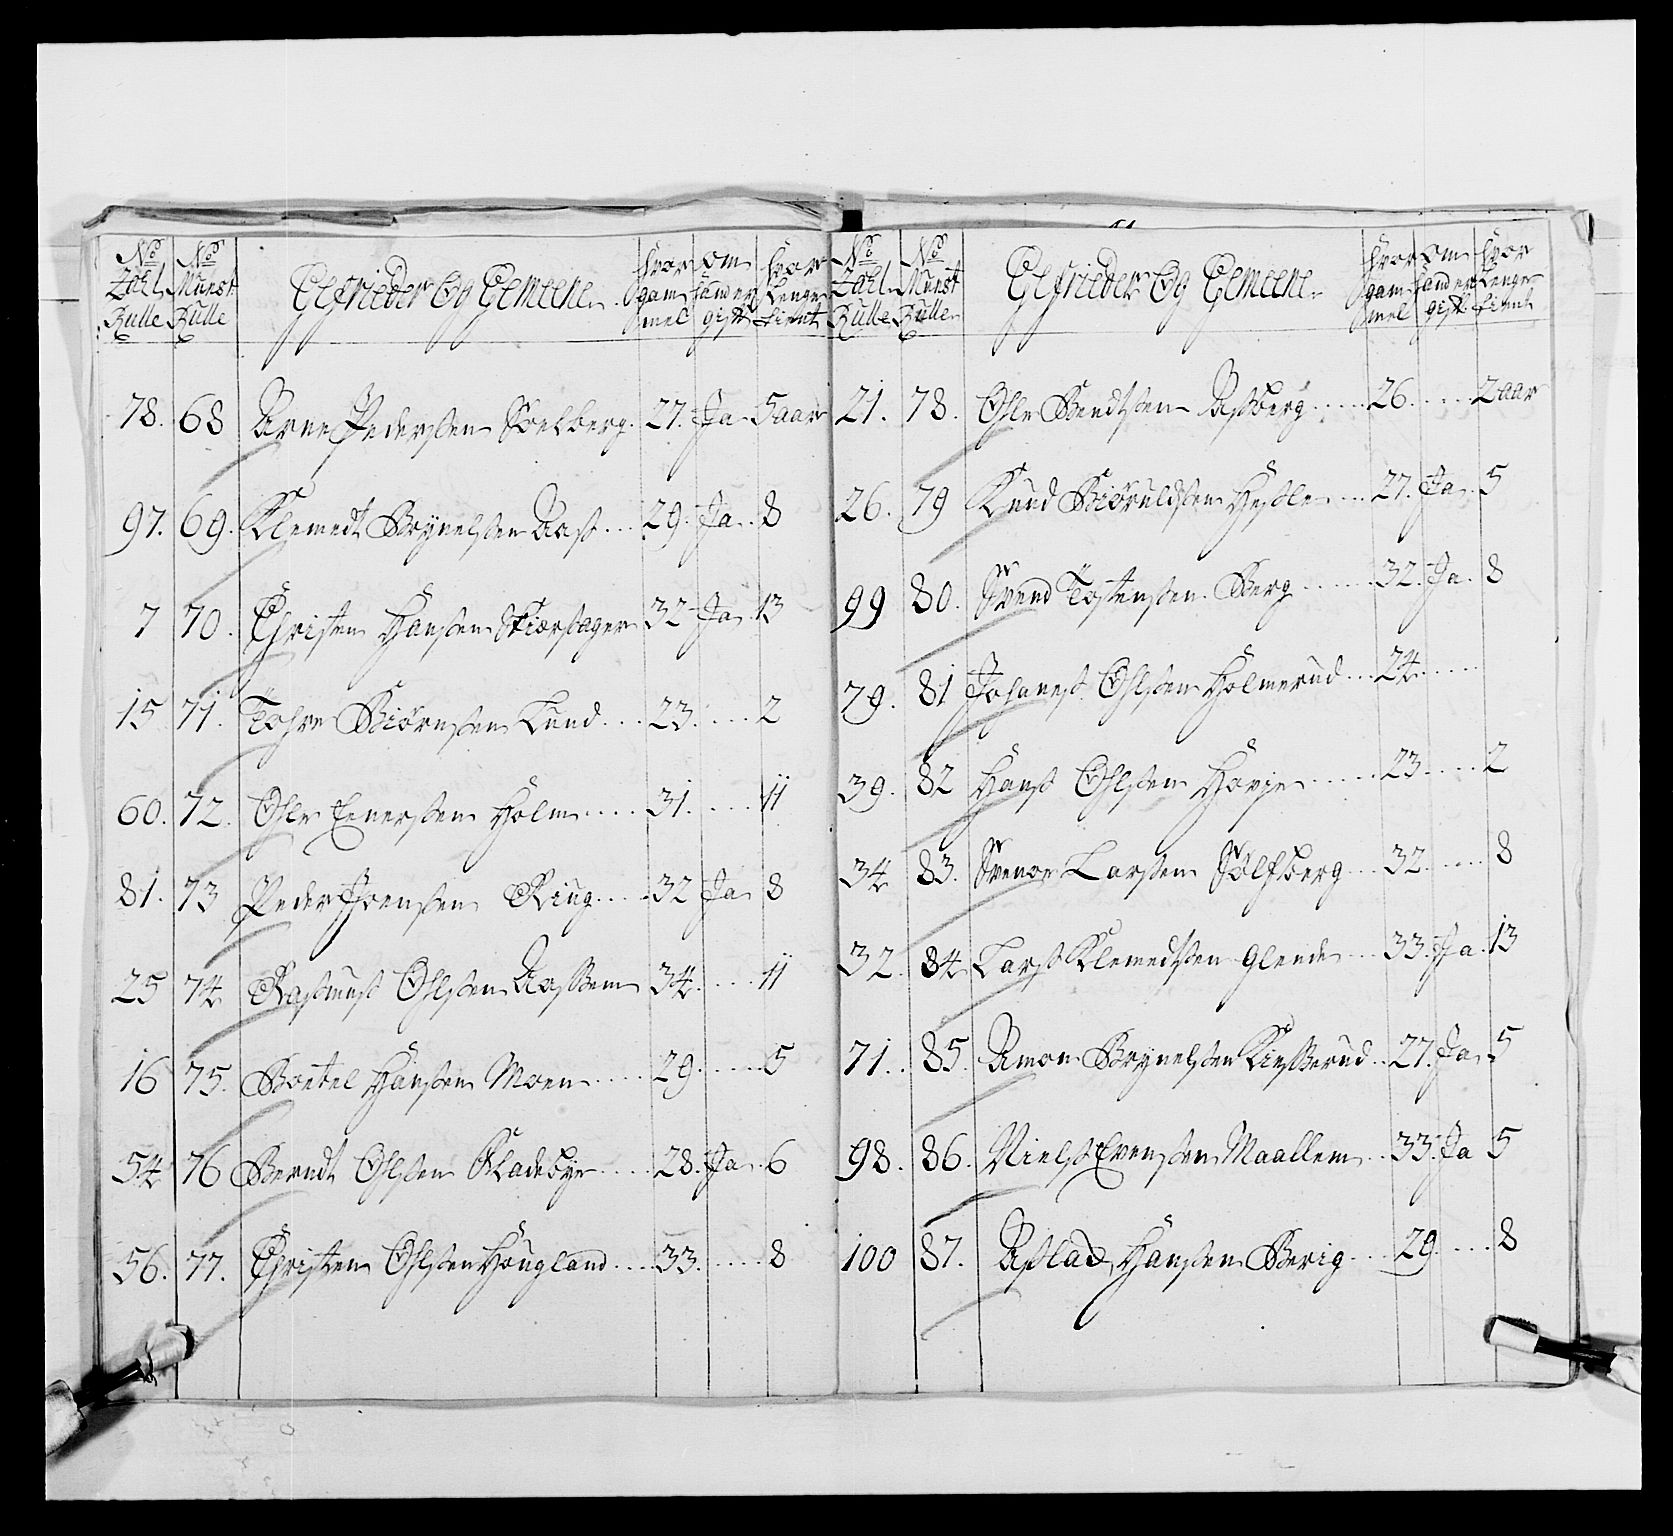 No Zahl Rulle | No Munst Rulle | Gefrieder Og Gemeene | hvor gam mel | om hånder gift | hvor lenge tient
78. 68 Arne Pedersen Soelberg. 27. Ja 5 aar
97. 69. Klemedt Brynelsen Aas... 29. Ja.. 8
7 70. Christen Hansen Skiørsager 32 Ja. 13
15 71. Tohre Biørnsen Lund... 23...... 2
60. 72. Ohle Enersen Holm..... 31...... 11
81. 73 Peder Joensen Ring..... 32 Ja 8
25 74 Rasmus Ohlsen Aassem 34...... 11
16 75. Boetel Hansen Moen..... 29...... 5
54 76 Berndt Ohlsen Kladebye.... 28. Ja. 6
56. 77. Christen Ohlsen Hougland.... 33...... 8
No Zahl Rulle | No Munst Rulle | Gefrieder Og Gemeene | hvor gam mel | om hånder gift | hvor lenge tient
21. 78. Ohle Bendtsen Asberg..... 26...... 2 aar
26. 79 Knud Biøruldsen Hesle.... 27. Ja. 5
99 80. Svend Tostensen Berg...... 32. Ja. 8
79. 81 Johanes Ohlsen Holmerud... 24......
39. 82 Hans Ohlsen Horje...... 23...... 2
34 83. Svenor Larsen Sølfberg... 32...... 8
32. 84 Lars Klemedtsen Glende... 33. Ja. 13
71.. 85. Amon Brynelsen Kieserud.. 27. Ja. 5
98. 86. Niels Evensen Maallem.. 33. Ja 5
100 87. Aslad Hansen Berig.... 29..... 8